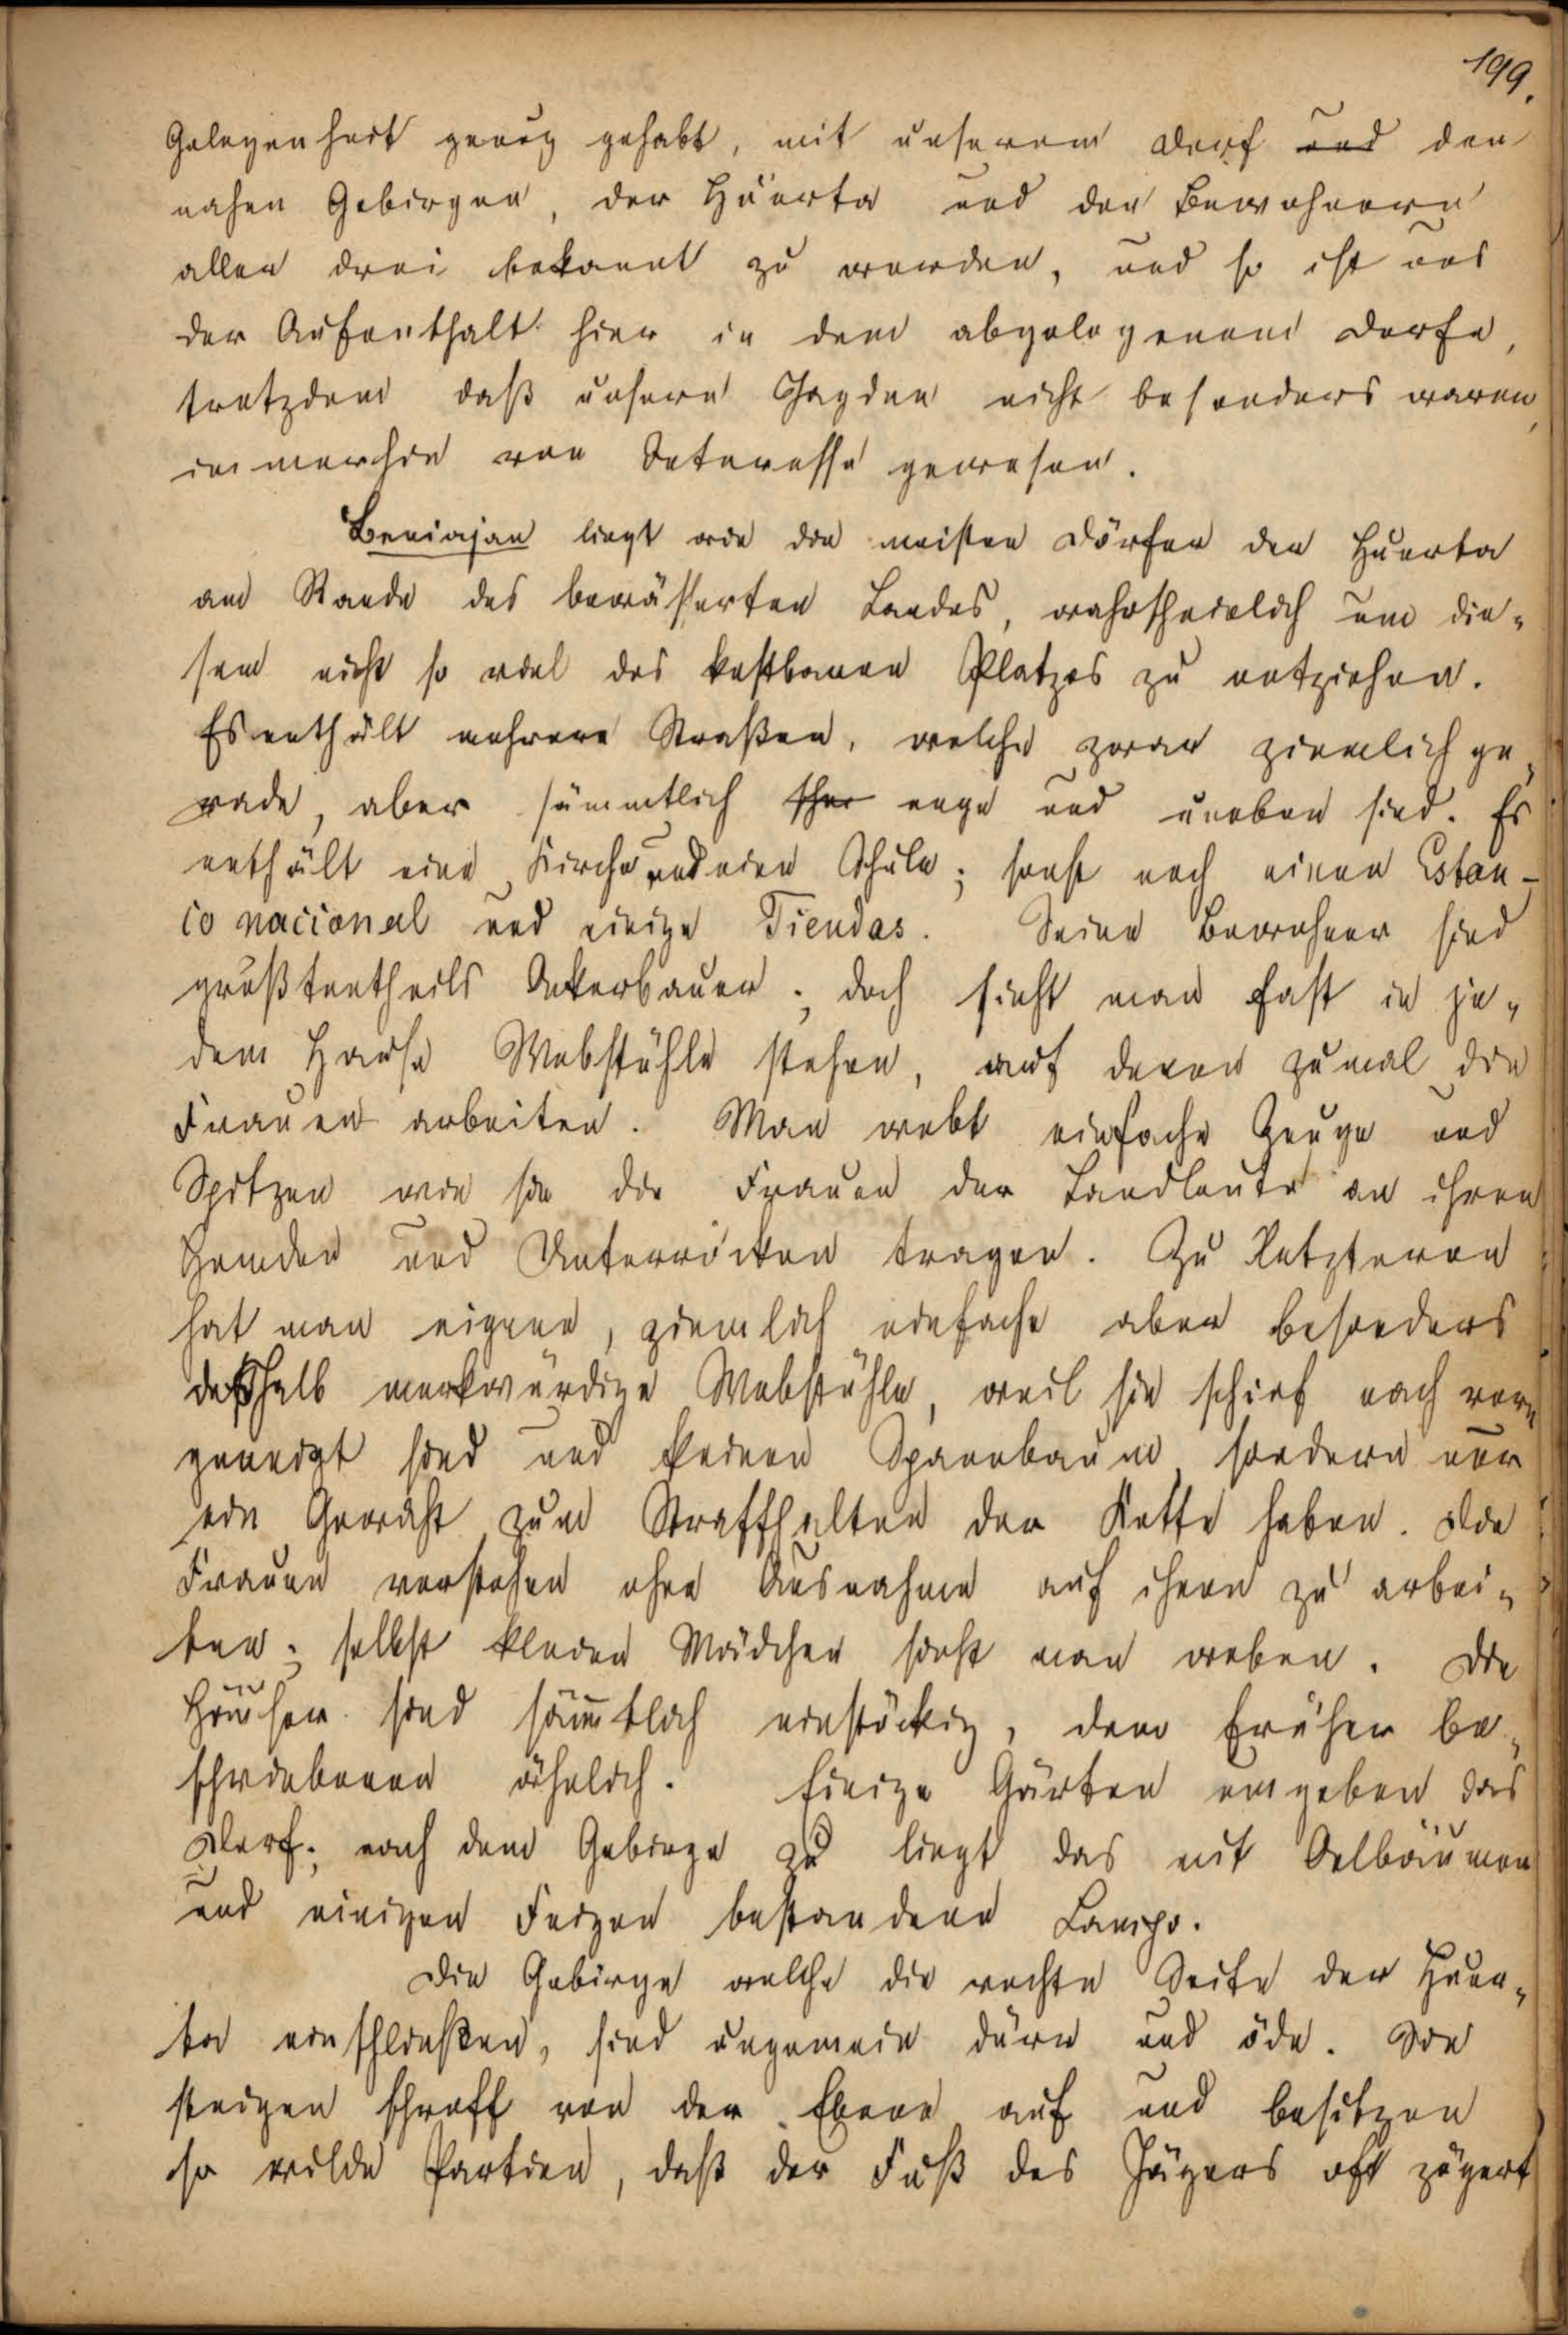 199.
Gelegenheit genug gehabt, mit unserem Dorf und den
nahen Gebirgen, der Huerta und den Bewohnern
allen drei bekannt zu werden, und so ist uns
der Aufenthalt hier in dem abgelegenem Dorfe,
trotzdem daß unsere Jagden nicht besonders waren,
immerhin von Interesse gewesen.
Beniajan liegt wie die meisten Dörfer der Huerta
am Rande des bewässerten Landes, wahrscheinlich um die-
sem nicht so viel des kostbaren Platzes zu entziehen.
Es enthält mehrere Straßen, welche zwar ziemlich ge-
rade, aber sämmtlich sehr enge und uneben sind. Es
enthält eine Kirche und eine Schule; sonst noch einen Estan-
co nacional und einige Tiendas. Seine Bewohner sind
größtentheils Ackerbauer; doch sieht man fast in je-
dem Hause Webstühle stehen, auf denen zumal die
Frauen arbeiten. Man webt einfache Zeuge und
Spitzen wie sie die Frauen der Landleute an ihren
Hemden und Unterröcken tragen. Zu letzteren
hat man eigene, ziemlich einfache aber besonders
deßhalb merkwürdige Webstühle, weil sie schief nach vorn
geneigt sind und keinen Spannbaum sondern nur
ein Gewicht zum Straffhalten der Kette haben. Die
Frauen verstehen ohne Ausnahme auf ihnen zu arbei-
ten; selbst kleine Mädchen sieht man weben. Die
Häuser sind sämmtlich einstöckig, den früher be-
schriebenen ähnlich. Einige Gärten umgeben das
Dorf; nach dem Gebirge zu liegt das mit Oelbäumen
und einigen Feigen bestandene Campo.
Die Gebirge welche die rechte Seite der Huer-
ta einschließen, sind ungemein dürr und öde. Sie
steigen schroff von der Ebene auf und besitzen
so wilde Partien, daß der Fuß des Jägers oft zögert